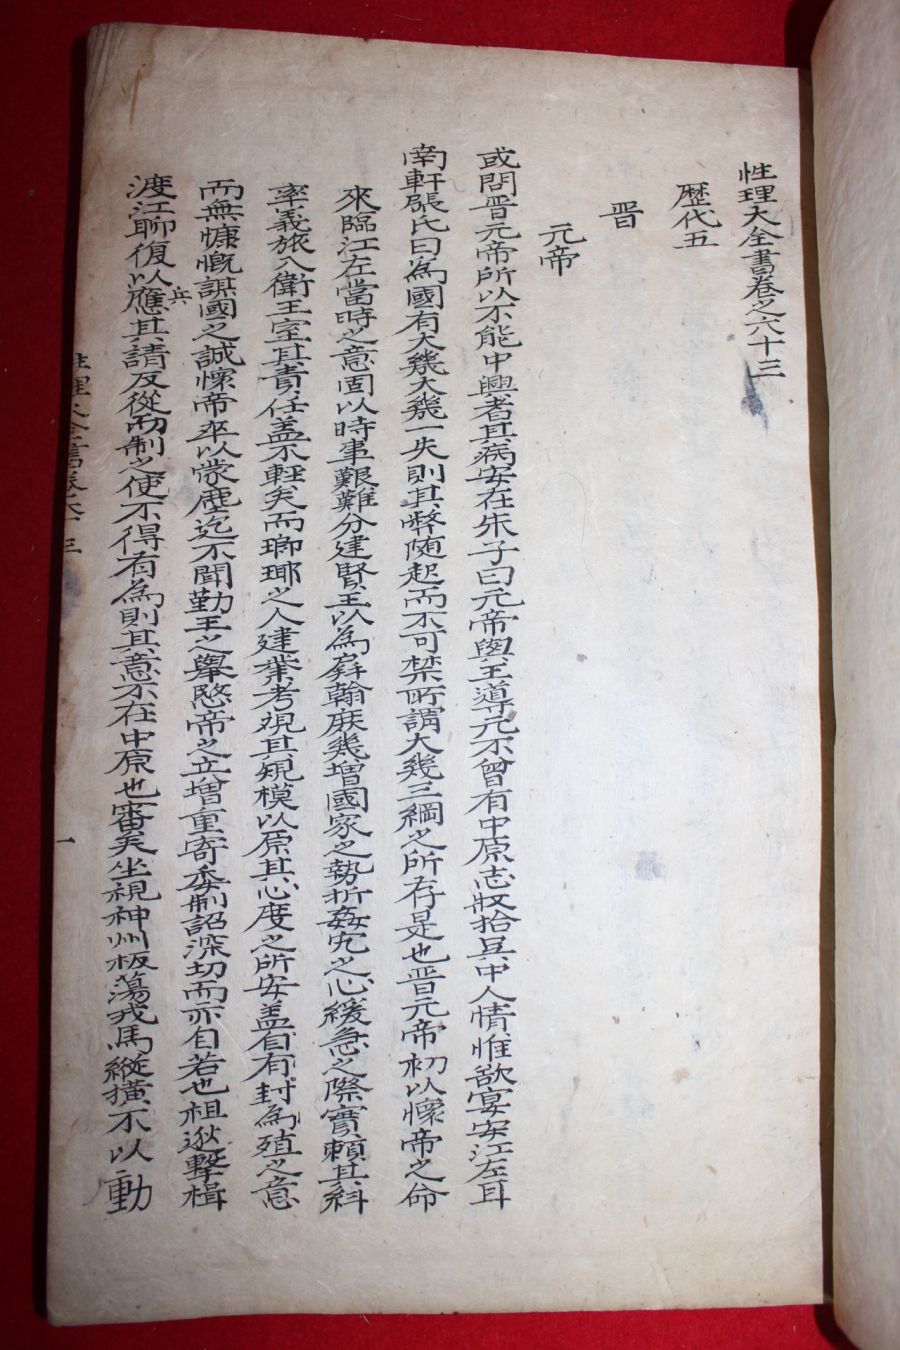 性理大全書卷之六十三
歷代五
晋
元帝
或問晋元帝所以不能中興者其病安在朱子曰元帝與王導元不曾有中原志收拾吳中人情惟欲宴安江左耳
南軒張氏曰為國有大幾大幾一失則其弊随起而不可禁所謂大幾三綱之所存是也晋元帝初以懷帝之命
來臨江左當時之意固以時事艱難分建賢王以為屛翰庶幾增國家之勢折姦宄之心緩急之際實賴其糾
率義旅入衛王室其責任盖不輕矣而瑯琊之入建業考觀其䂓模以原其心度之所安盖自有封為殖之意
而無慷慨謀國之誠懷帝卒以蒙塵迄不聞勤王之擧愍帝之立增重寄委制詔深切而亦自若也祖逖擊楫
渡江聊復以應其請反從而制之使不得有為則其意不在中原也審矣坐視神州板蕩戎馬縱橫不以動
兵
性理大全書卷六十三
一